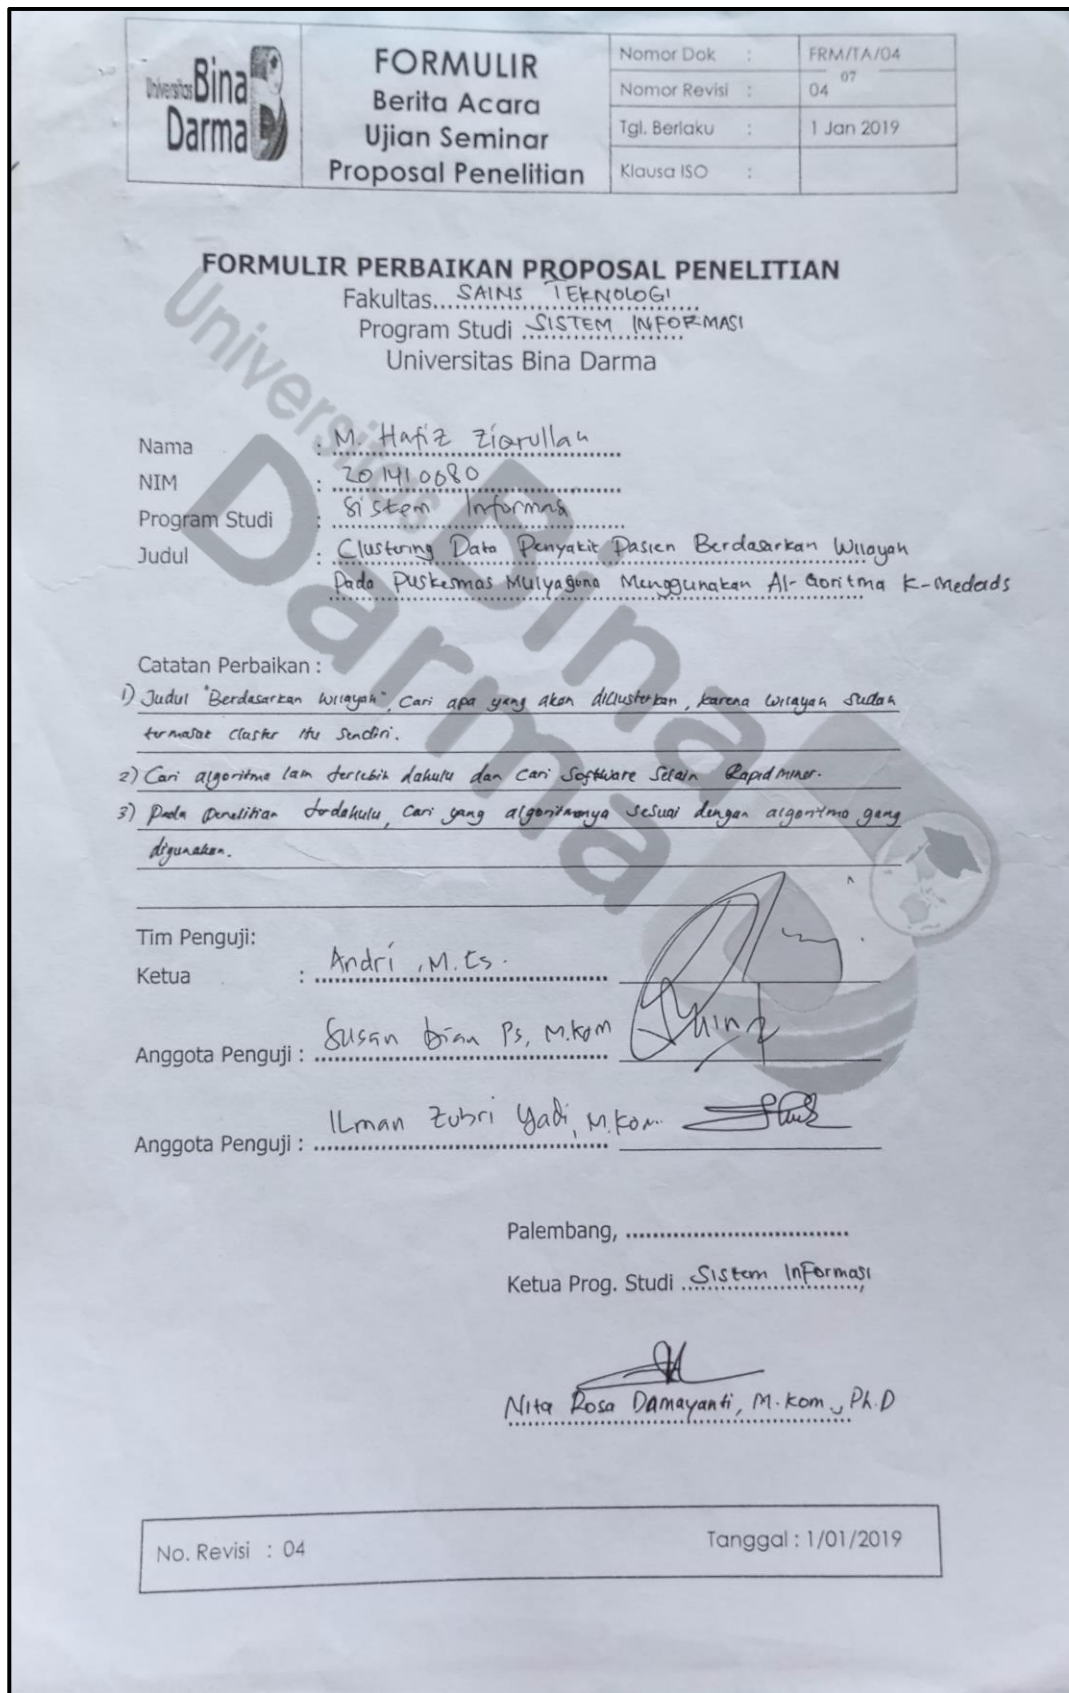 Universitas Bina
Darma
FORMULIR
Berita Acara
Ujian Seminar
Proposal Penelitian
Nomor Dok : FRM/TA/04
07
Nomor Revisi : 04
Tgl. Berlaku : 1 Jan 2019
Klausa ISO :
FORMULIR PERBAIKAN PROPOSAL PENELITIAN
Fakultas... SAINS TEKNOLOGI
Program Studi SISTEM INFORMASI
Universitas Bina Darma
Nama : M. Hafiz Ziarullah
NIM : 201410080
Program Studi : Sistem Informasi
Judul : Clustering Data Penyakit Pasien Berdasarkan Wilayah
Pada Puskesmas Mulyaguna Menggunakan Al-Goritma K-Medoids
Catatan Perbaikan :
1) Judul "Berdasarkan wilayah", Cari apa yang akan diclusterkan, karena wilayah sudah
termasuk cluster itu sendiri.
2) Cari algoritma lain terlebih dahulu dan cari Software Selain Rapid miner.
3) Pada Penelitian terdahulu, cari yang algoritmanya sesuai dengan algoritma yang
digunakan.
Tim Penguji:
Ketua : Andri, M.Cs.
Anggota Penguji : Susan Dian Ps, M.Kom
Anggota Penguji : ILman Zuhri Yadi, M.Kom.
Palembang, ................................
Ketua Prog. Studi Sistem Informasi
Nita Rosa Damayanti, M.Kom., Ph.D
No. Revisi : 04
Tanggal : 1/01/2019
Universitas
Bina
Darma